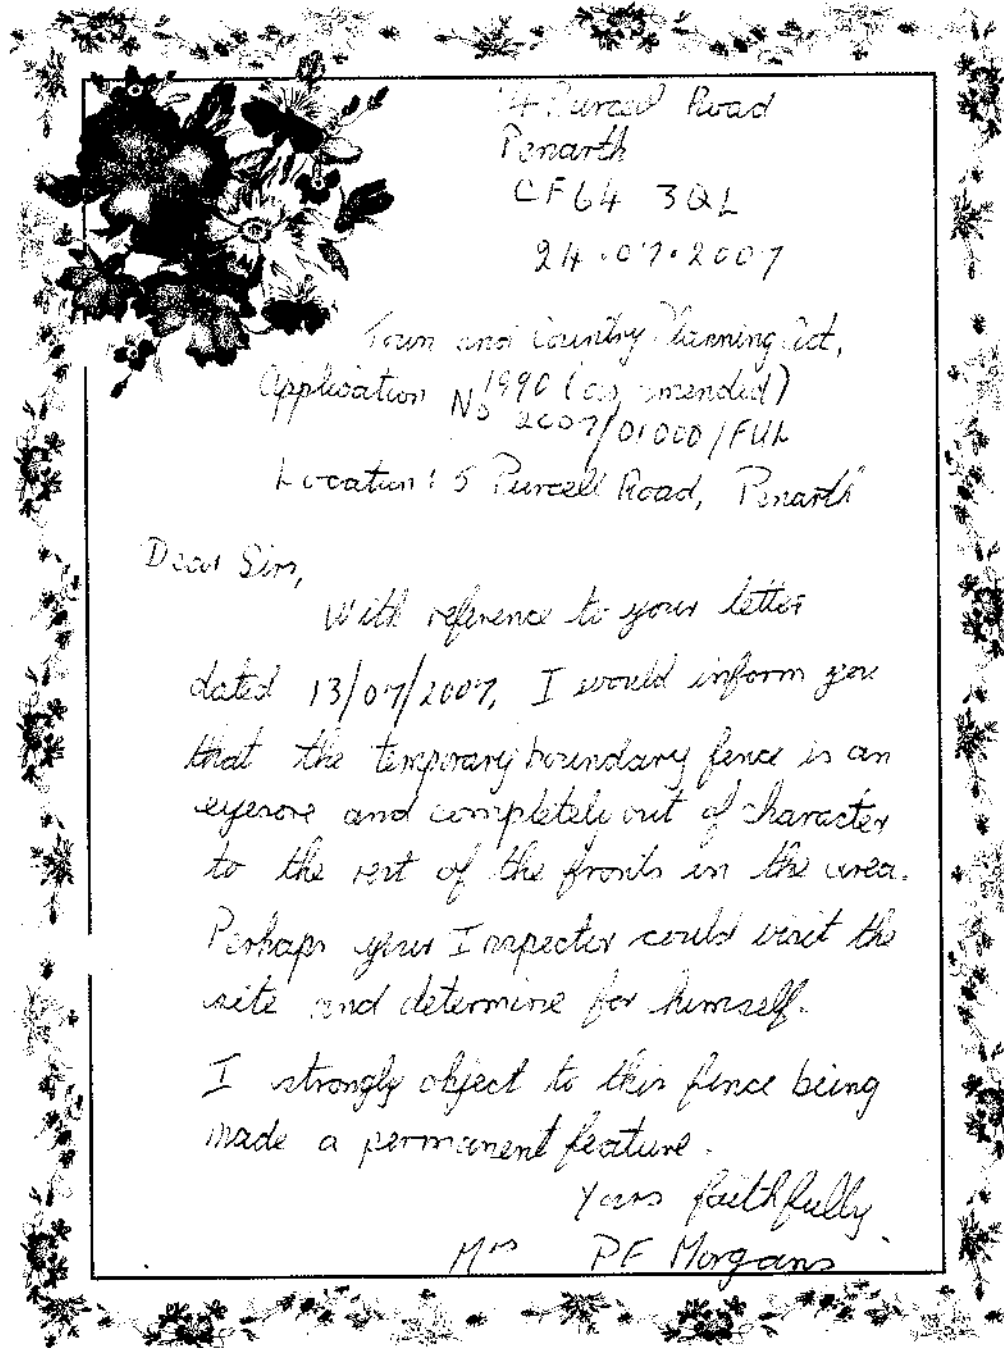 14 Purcell Road
Penarth
CF64 3QL
24.07.2007
Town and Country Planning Act,
1990 (as amended)
Application No 2007/01000/FUL
Location: 5 Purcell Road, Penarth
Dear Sirs,
With reference to your letter
dated 13/07/2007, I would inform you
that the temporary boundary fence is an
eyesore and completely out of character
to the rest of the fronts in the area.
Perhaps your Inspector could visit the
site and determine for himself.
I strongly object to this fence being
made a permanent feature.
Yours faithfully
Mrs PF Morgans